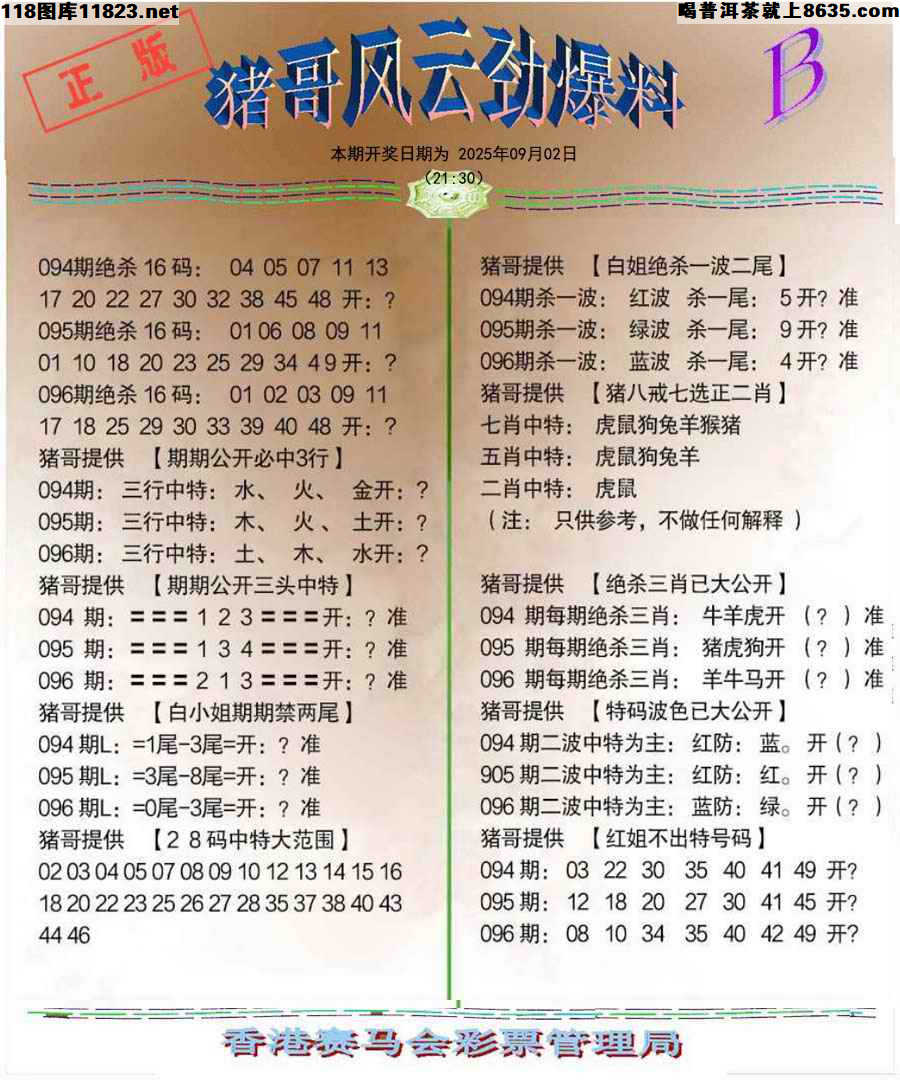 118图库11823.net
喝普洱茶就上8635.com
正版
猪哥风云劲爆料
B
本期开奖日期为 2025年09月02日
(21:30)
094期绝杀16码： 04 05 07 11 13
17 20 22 27 30 32 38 45 48 开：?
095期绝杀16码： 01 06 08 09 11
01 10 18 20 23 25 29 34 49 开：?
096期绝杀16码： 01 02 03 09 11
17 18 25 29 30 33 39 40 48 开：?
猪哥提供 【期期公开必中3行】
094期： 三行中特：水、 火、 金开：?
095期： 三行中特：木、 火、 土开：?
096期： 三行中特：土、 木、 水开：?
猪哥提供 【期期公开三头中特】
094 期：＝＝＝ 1 2 3 ＝＝＝开：? 准
095 期：＝＝＝ 1 3 4 ＝＝＝开：? 准
096 期：＝＝＝ 2 1 3 ＝＝＝开：? 准
猪哥提供 【白小姐期期禁两尾】
094期L：=1尾-3尾=开：? 准
095期L：=3尾-8尾=开：? 准
096期L：=0尾-3尾=开：? 准
猪哥提供 【２８码中特大范围】
02 03 04 05 07 08 09 10 12 13 14 15 16
18 20 22 23 25 26 27 28 35 37 38 40 43
44 46
猪哥提供 【白姐绝杀一波二尾】
094期杀一波： 红波 杀一尾： 5开? 准
095期杀一波： 绿波 杀一尾： 9开? 准
096期杀一波： 蓝波 杀一尾： 4开? 准
猪哥提供 【猪八戒七选正二肖】
七肖中特： 虎鼠狗兔羊猴猪
五肖中特： 虎鼠狗兔羊
二肖中特： 虎鼠
（注： 只供参考，不做任何解释 ）
猪哥提供 【绝杀三肖已大公开】
094 期每期绝杀三肖： 牛羊虎开 （?）准
095 期每期绝杀三肖： 猪虎狗开 （?）准
096 期每期绝杀三肖： 羊牛马开 （?）准
猪哥提供 【特码波色已大公开】
094期二波中特为主：红防：蓝。开（?）
905期二波中特为主：红防：红。开（?）
096期二波中特为主：蓝防：绿。开（?）
猪哥提供 【红姐不出特号码】
094期： 03 22 30 35 40 41 49 开?
095期： 12 18 20 27 30 41 45 开?
096期： 08 10 34 35 40 42 49 开?
香港赛马会彩票管理局